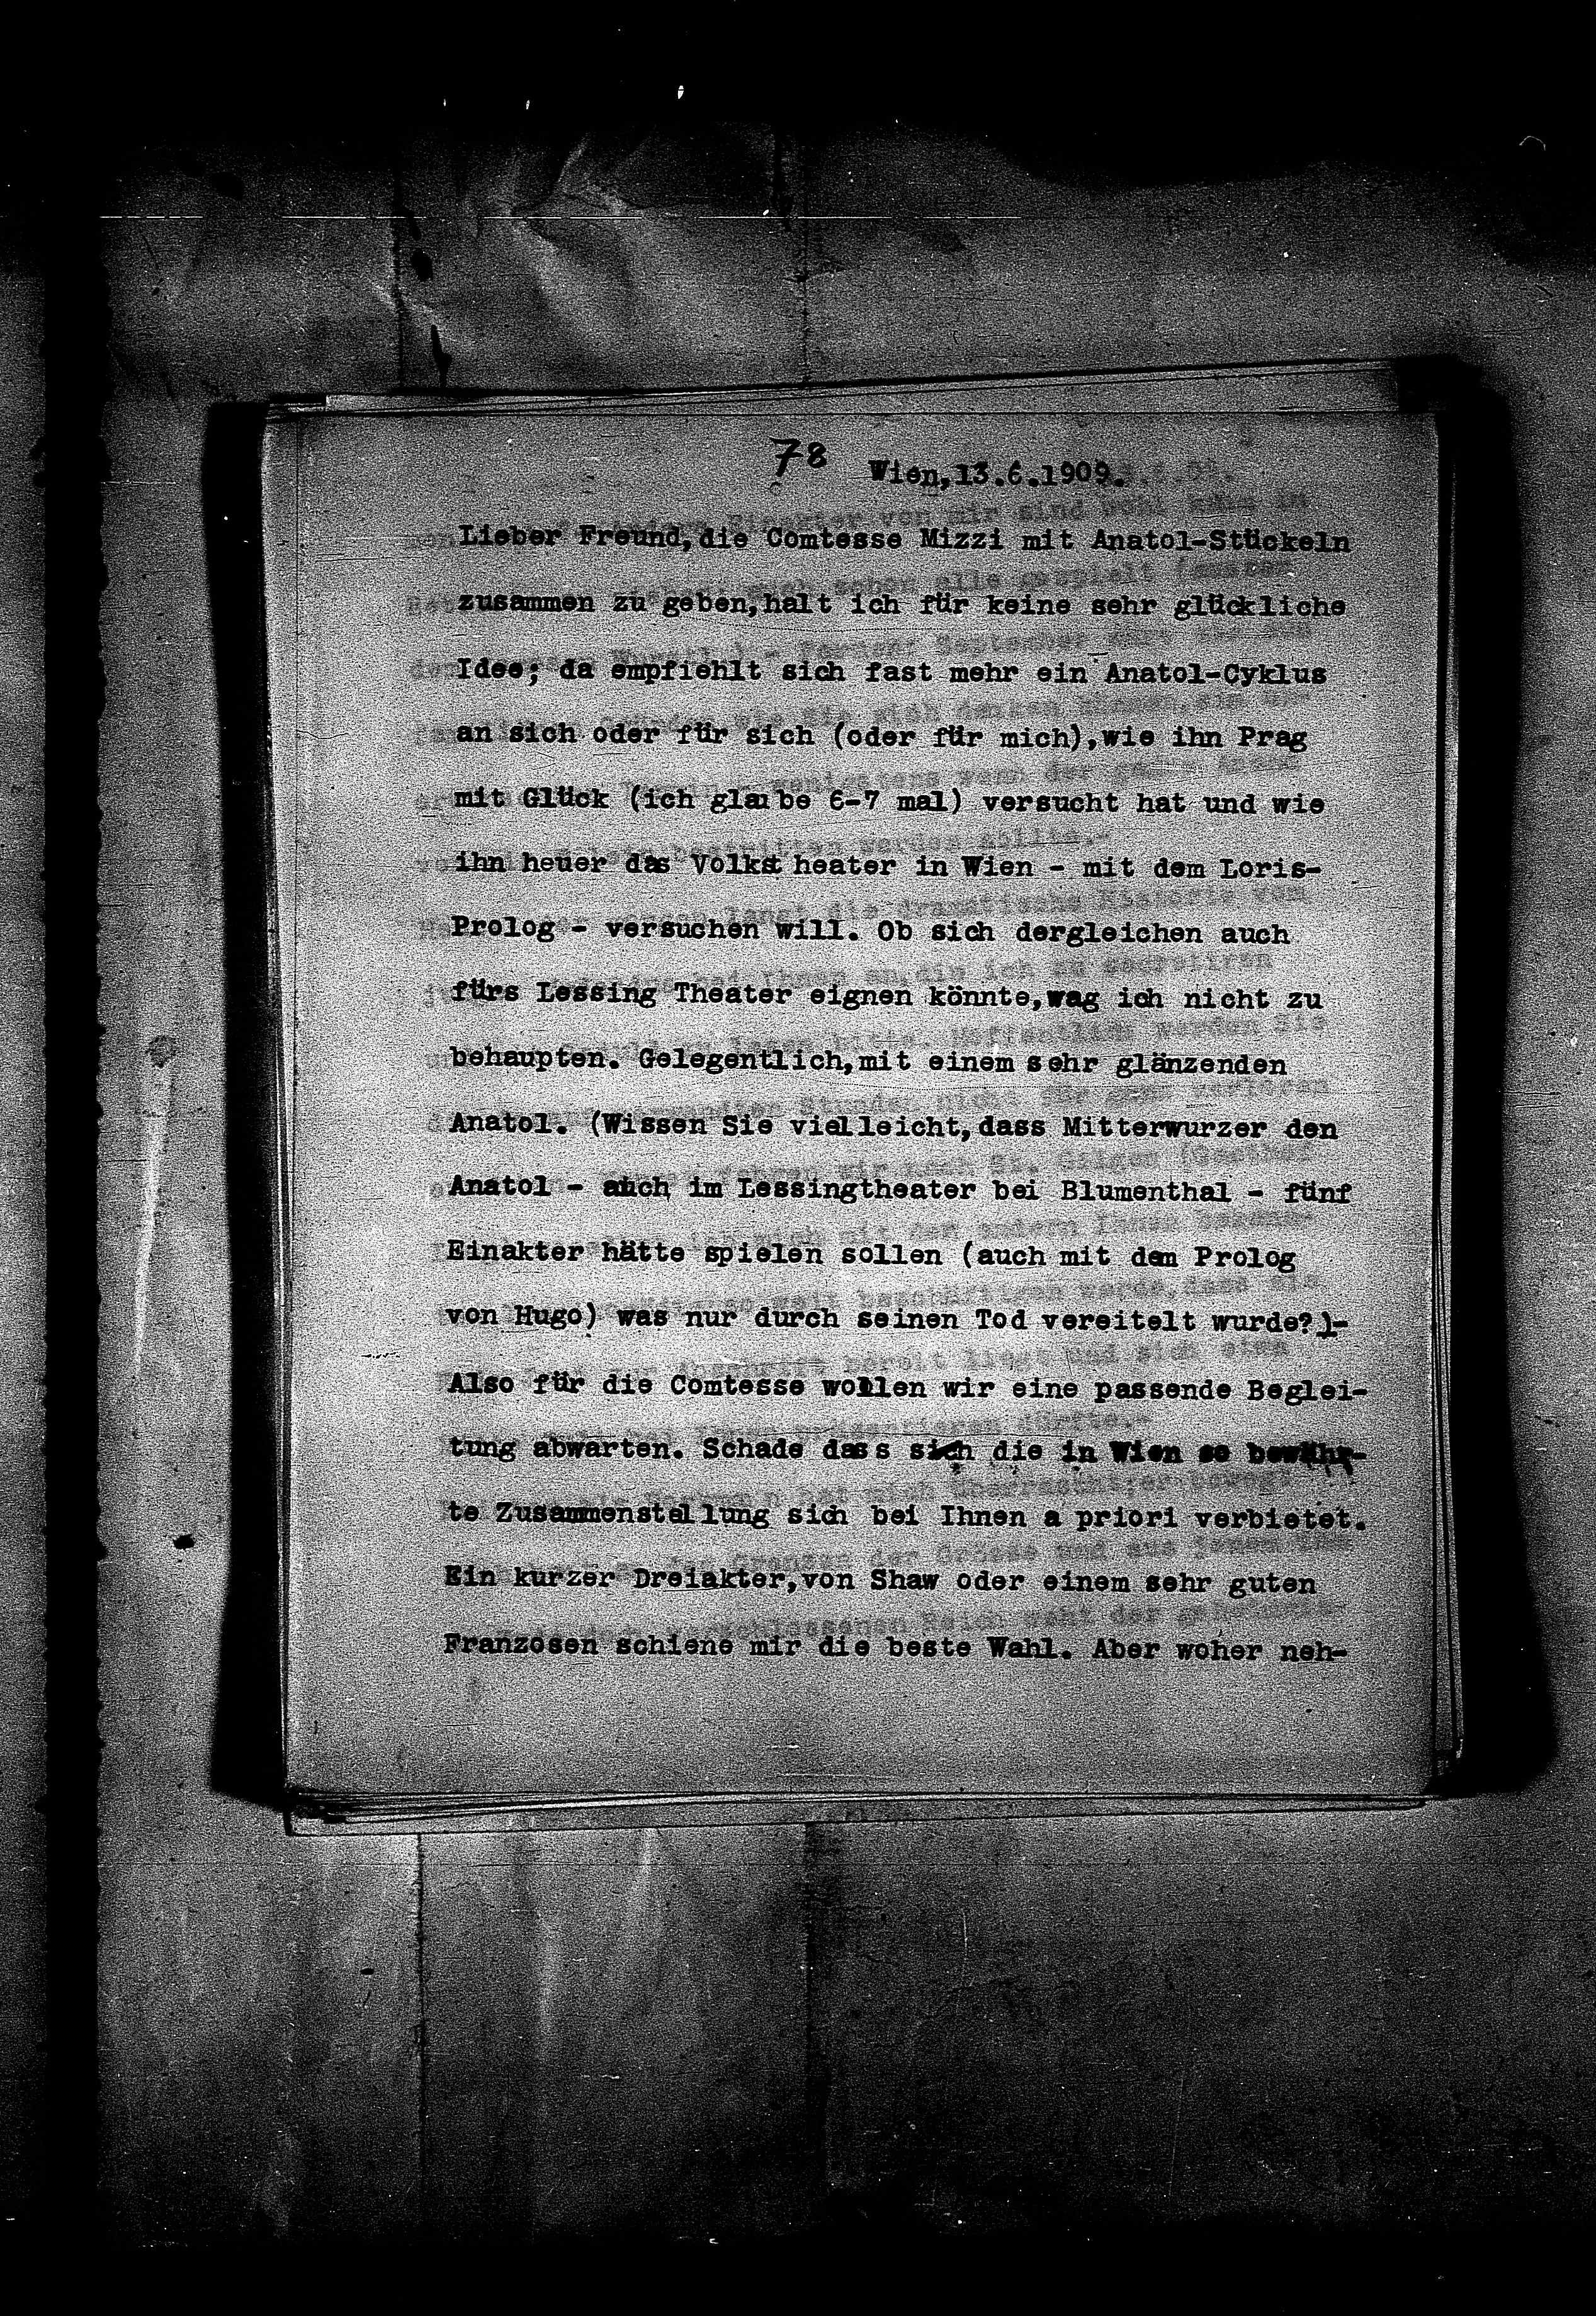 78
Wien,13.6.1909.
Lieber Freund,die Comtesse Mizzi mit Anatol-Stückeln
zusammen zu geben,halt ich für keine sehr glückliche
Idee; da empfiehlt sich fast mehr ein Anatol-Cyklus
an sich oder für sich (oder für mich),wie ihn Prag
mit Glück (ich glaube 6-7 mal) versucht hat und wie
ihn heuer das Volkstheater in Wien - mit dem Loris-
Prolog - versuchen will. Ob sich dergleichen auch
fürs Lessing Theater eignen könnte,wag ich nicht zu
behaupten. Gelegentlich,mit einem sehr glänzenden
Anatol. (Wissen Sie vielleicht,dass Mitterwurzer den
Anatol - auch im Lessingtheater bei Blumenthal - fünf
Einakter hätte spielen sollen (auch mit dem Prolog
von Hugo) was nur durch seinen Tod vereitelt wurde?)-
Also für die Comtesse wollen wir eine passende Beglei-
tung abwarten. Schade dass sich die in Wien so bewähr-
te Zusammenstellung sich bei Ihnen a priori verbietet.
Ein kurzer Dreiakter,von Shaw oder einem sehr guten
Franzosen schiene mir die beste Wahl. Aber woher neh-